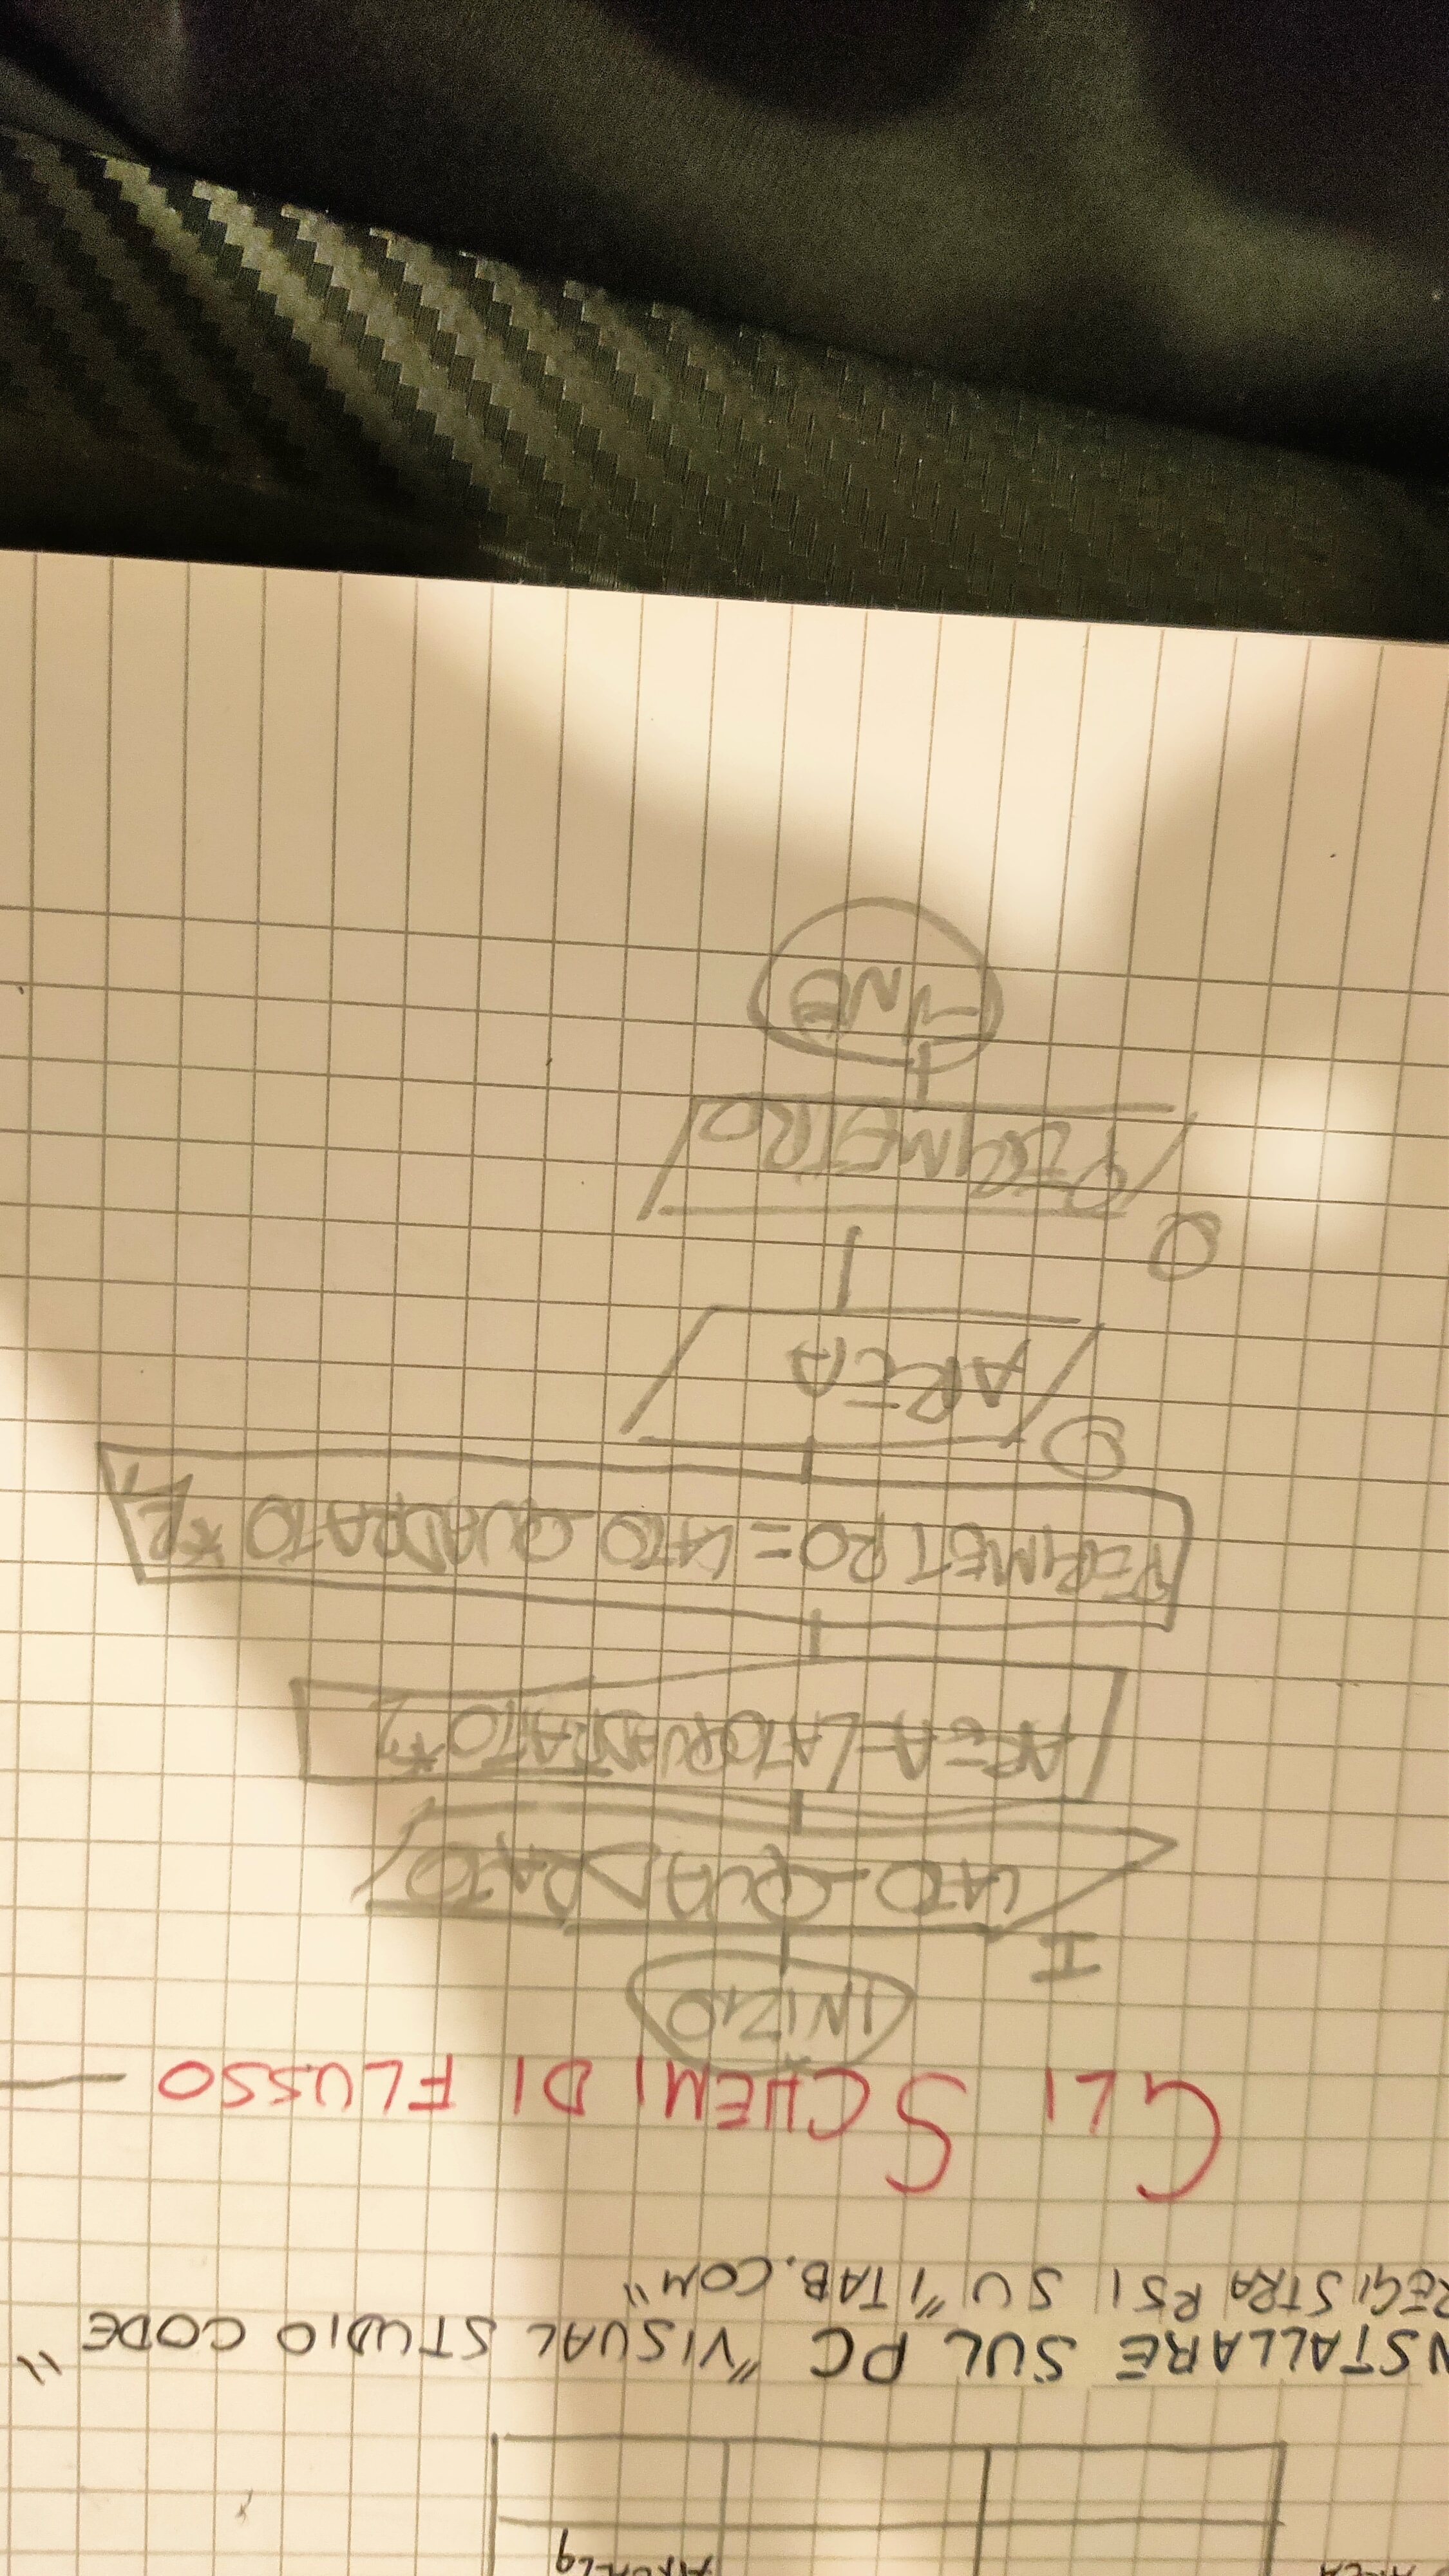 NSTALLARE SUL PC "VISUAL STUDIO CODE"
REGISTRARSI SU "ITAB.COM"
GLI SCHEMI DI FLUSSO
INIZIO
I
LATO_QUADRATO
AREA=LATOQUADRATO*2
PERIMETRO=LATO_QUADRATO *
O
AREA
O
PERIMETRO
FINE